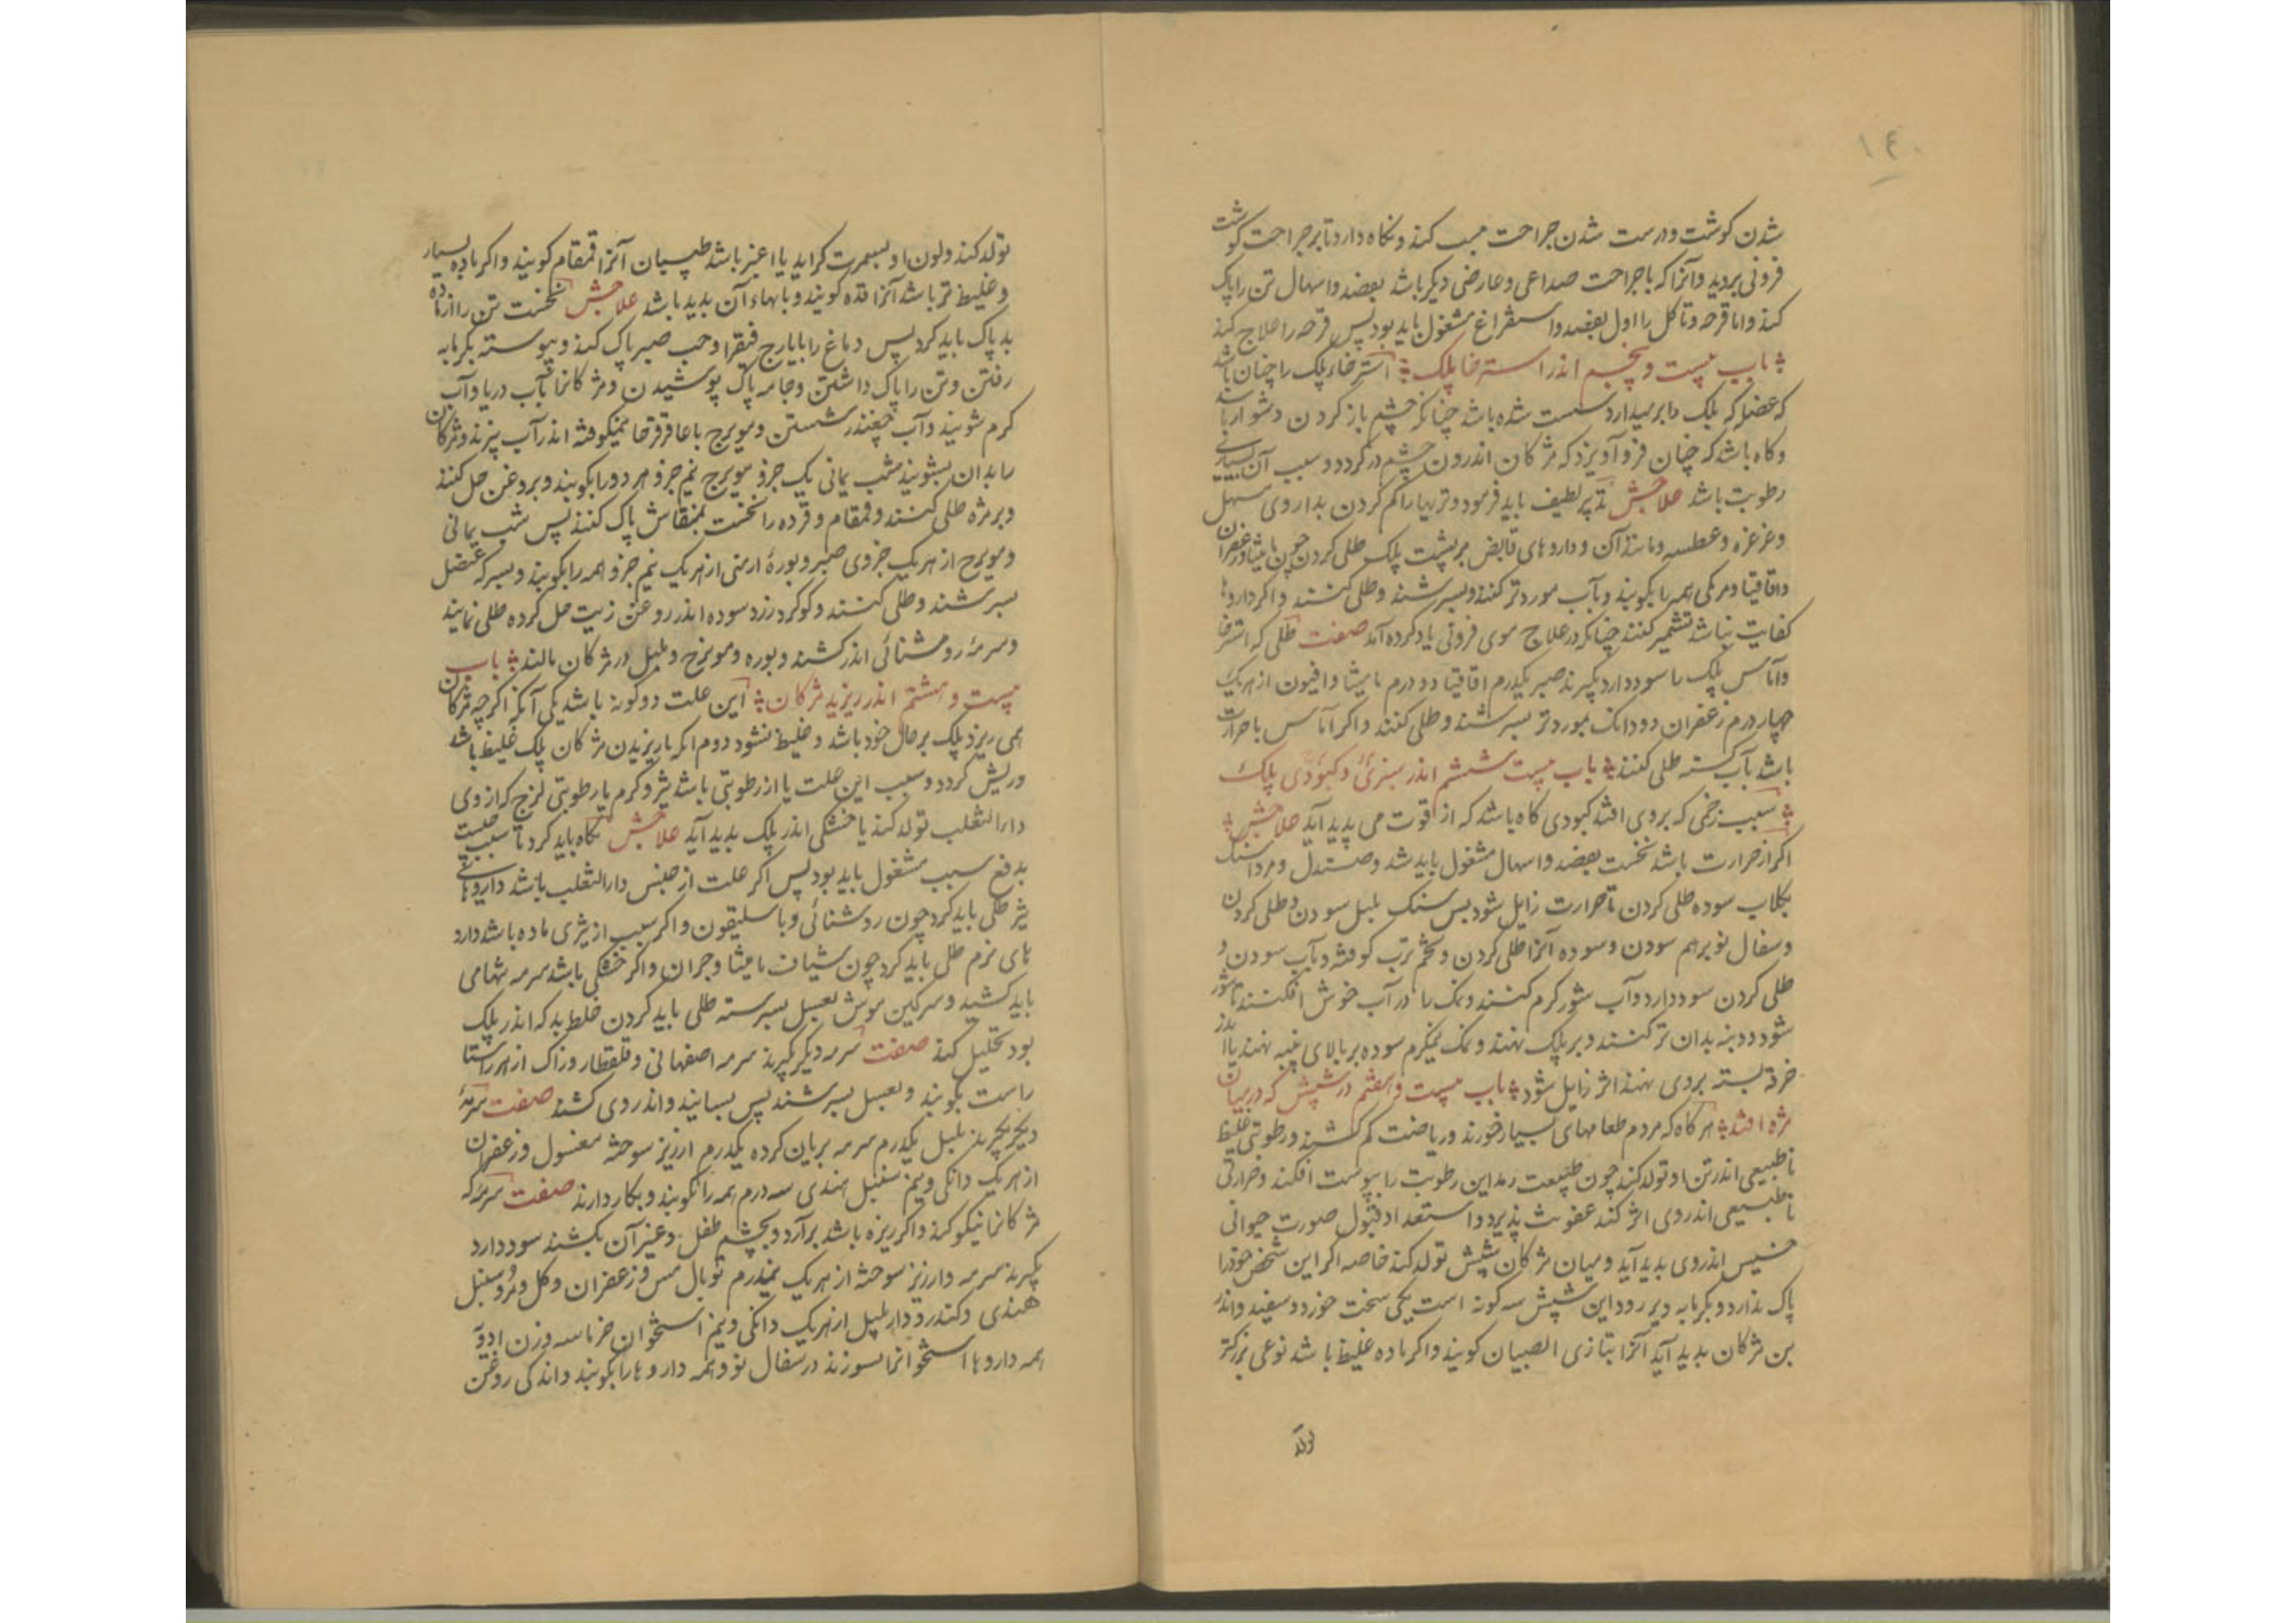 ۱۴۰
شدن کوشت ودرست شدن جراحت سبب کند ونکاه دارد تا بر جراحت کوشت
فزونی بروید وآنرا که با جراحت صداعی وعارضی دیکر باشد بفصد واسهال تن را پاک
کند واما قرحه وتاکل را اول بفصد واستفراغ مشغول باید بود پس قرحه را علاج کند
باب بیست وپنجم اندر استرخا پلک استرخا پلک را چنان باشد
که عضلها که پلک را برمیدارد سست شده باشد چنانکه چشم باز کردن دشوار باشد
وکاه باشد که چنان فرو آویزد که مژکان اندرون چشم در کردد وسبب آن بسیاری
رطوبت باشد علاجش تدبیر لطیف باید فرمود وتریها را کم کردن بداروی مسهل
وغرغره وعطسه ومانند آن وداروهای قابض بر پشت پلک طلی کردن چون مامیثا وزعفران
واقاقیا ومرمکی همه را بکوبند وبآب موردتر کنند وبسرشند وطلی کنند واکر داروها
کفایت نباشد تشمیر کنند چنانکه در علاج موی فزونی یاد کرده آمد صفت طلی که استرخا
وآماس پلک را سود دارد بکیرند صبر یکدرم اقاقیا دو درم مامیثا وافیون از هریک
چهار درم زعفران دو دانک بموردتر بسرشند وطلی کنند واکر آماس با حرارت
باشد بآب کسنه طلی کنند باب بیست ششم اندر سبزی وکبودی پلک
سبب زخمی که بروی افتد کبودی کاه باشد که از قوت می پدید آید علاجش
اکر از حرارت باشد نخست بفصد واسهال مشغول باید شد وصندل ومرداسنک
بکلاب سوده طلی کردن تا حرارت زایل شود پس سنک بلبل سودن وطلی کردن
وسفال نو برهم سودن وسوده آنرا طلی کردن وتخم ترب کوفته وبآب سودن و
طلی کردن سود دارد وآب شور کرم کنند ونمک را در آب خوش افکنند تا شور
شود وپنبه بدان تر کنند وبر پلک نهند ونمک نیمکرم سوده بر بالای پنبه نهند یا اندر
خرقه بسته بروی نهند اثر زایل شود باب بیست وهفتم در شپش که در میان
مژه افتد هرکاه که مردم طعامهای بسیار خورند وریاضت کم کشند ورطوبتی غلیظ
ناطبیعی اندر تن او تولد کند چون طبیعت مر این رطوبت را بپوست افکند وحرارتی
ناطبیعی اندروی اثر کند عفونت پذیرد واستعداد قبول صورت حیوانی
خسیس اندروی پدید آید ومیان مژکان شپش تولد کند خاصه اکر این شخص خود را
پاک ندارد وبکرمابه دیر رود این شپش سه کونه است یکی سخت خورد وسفید واندر
بن مژکان پدید آید آنرا بتازی الصیبان کویند واکر ماده غلیظ باشد نوعی بزرکتر
تولد
تولد کند ولون او بسمرت کراید یا اغبر باشد طبیبان آنرا قمقام کویند واکر ماده بسیار
وغلیظ تر باشد آنرا قرده کویند وپایهاء آن پدید باشد علاجش نخست تن را از ماده
بد پاک باید کرد پس دماغ را بایارج فیقرا وحب صبر پاک کند وپیوسته بکرمابه
رفتن وتن را پاک داشتن وجامه پاک پوشیدن ومژکانرا بآب دریا وآب
کرم شویند وآب چغندر شستن ومویزج با عاقرقرحا نیمکوفته اندر آب پزند ومژکان
را بدان بشویند شب یمانی یک جزو مویزج نیم جزو هر دو را بکوبند وبروغن حل کنند
وبر مژه طلی کنند وقمقام وقرده را نخست بمنقاش پاک کنند پس شب یمانی
ومویزج از هریک جزوی صبر وبورهٔ ارمنی از هریک نیم جزو همه را بکوبند وبسرکه عنصل
بسرشند وطلی کنند وکوکرد زرد سوده اندر روغن زیت حل کرده طلی نمایند
وسرمه روشنائی اندر کشند وبوره ومویزج وپلپل در مژکان مالند باب
بیست وهشتم اندر ریزیدن مژکان این علت دو کونه باشد یکی آنکه اکرچه مژکان
همی ریزد پلک بر حال خود باشد وغلیظ نشود دوم انکه با ریزیدن مژکان پلک غلیظ باشد
وریش کردد وسبب این علت یا از رطوبتی باشد تیز وکرم یا رطوبتی لزج که از وی
داءالثعلب تولد کند یا خشکی اندر پلک پدید آید علاجش نکاه باید کرد تا سبب چیست
بدفع سبب مشغول باید بود پس اکر علت از جنس داءالثعلب باشد داروهای
تیز طلی باید کرد چون روشنائی وباسلیقون واکر سبب از تیزی ماده باشد دارو
های نرم طلی باید کرد چون شیاف مامیثا وجز آن واکر خشکی باشد سرمه شهامی
باید کشید وسرکین موش بعسل بسرشته طلی باید کردن خلط بد که اندر پلک
بود تحلیل کند صفت سرمه دیکر بکیرند سرمه اصفهانی وقلقطار وزاک از هر راستا
راست بکوبند وبعسل بسرشند پس بسایند واندروی کشند صفت سرمهٔ
دیکر بکیرند پلپل یکدرم سرمه بریان کرده یکدرم ارزیز سوخته مغسول وزعفران
از هریک دانکی ونیم سنبل هندی سه درم همه را بکوبند وبکار دارند صفت سرمه که
مژکانرا نیکو کند واکر ریزه باشد برآرد وبچشم طفل وغیر آن بکشند سود دارد
بکیرند سرمه وارزیز سوخته از هریک نیمدرم توبال مس وزعفران وکل ومرو سنبل
هندی وکندر ودارپلپل از هریک دانکی ونیم استخوان خرما سه وزن ادویه
همه داروها استخوانرا بسوزند در سفال نو وهمه داروها را بکوبند واندکی روغن